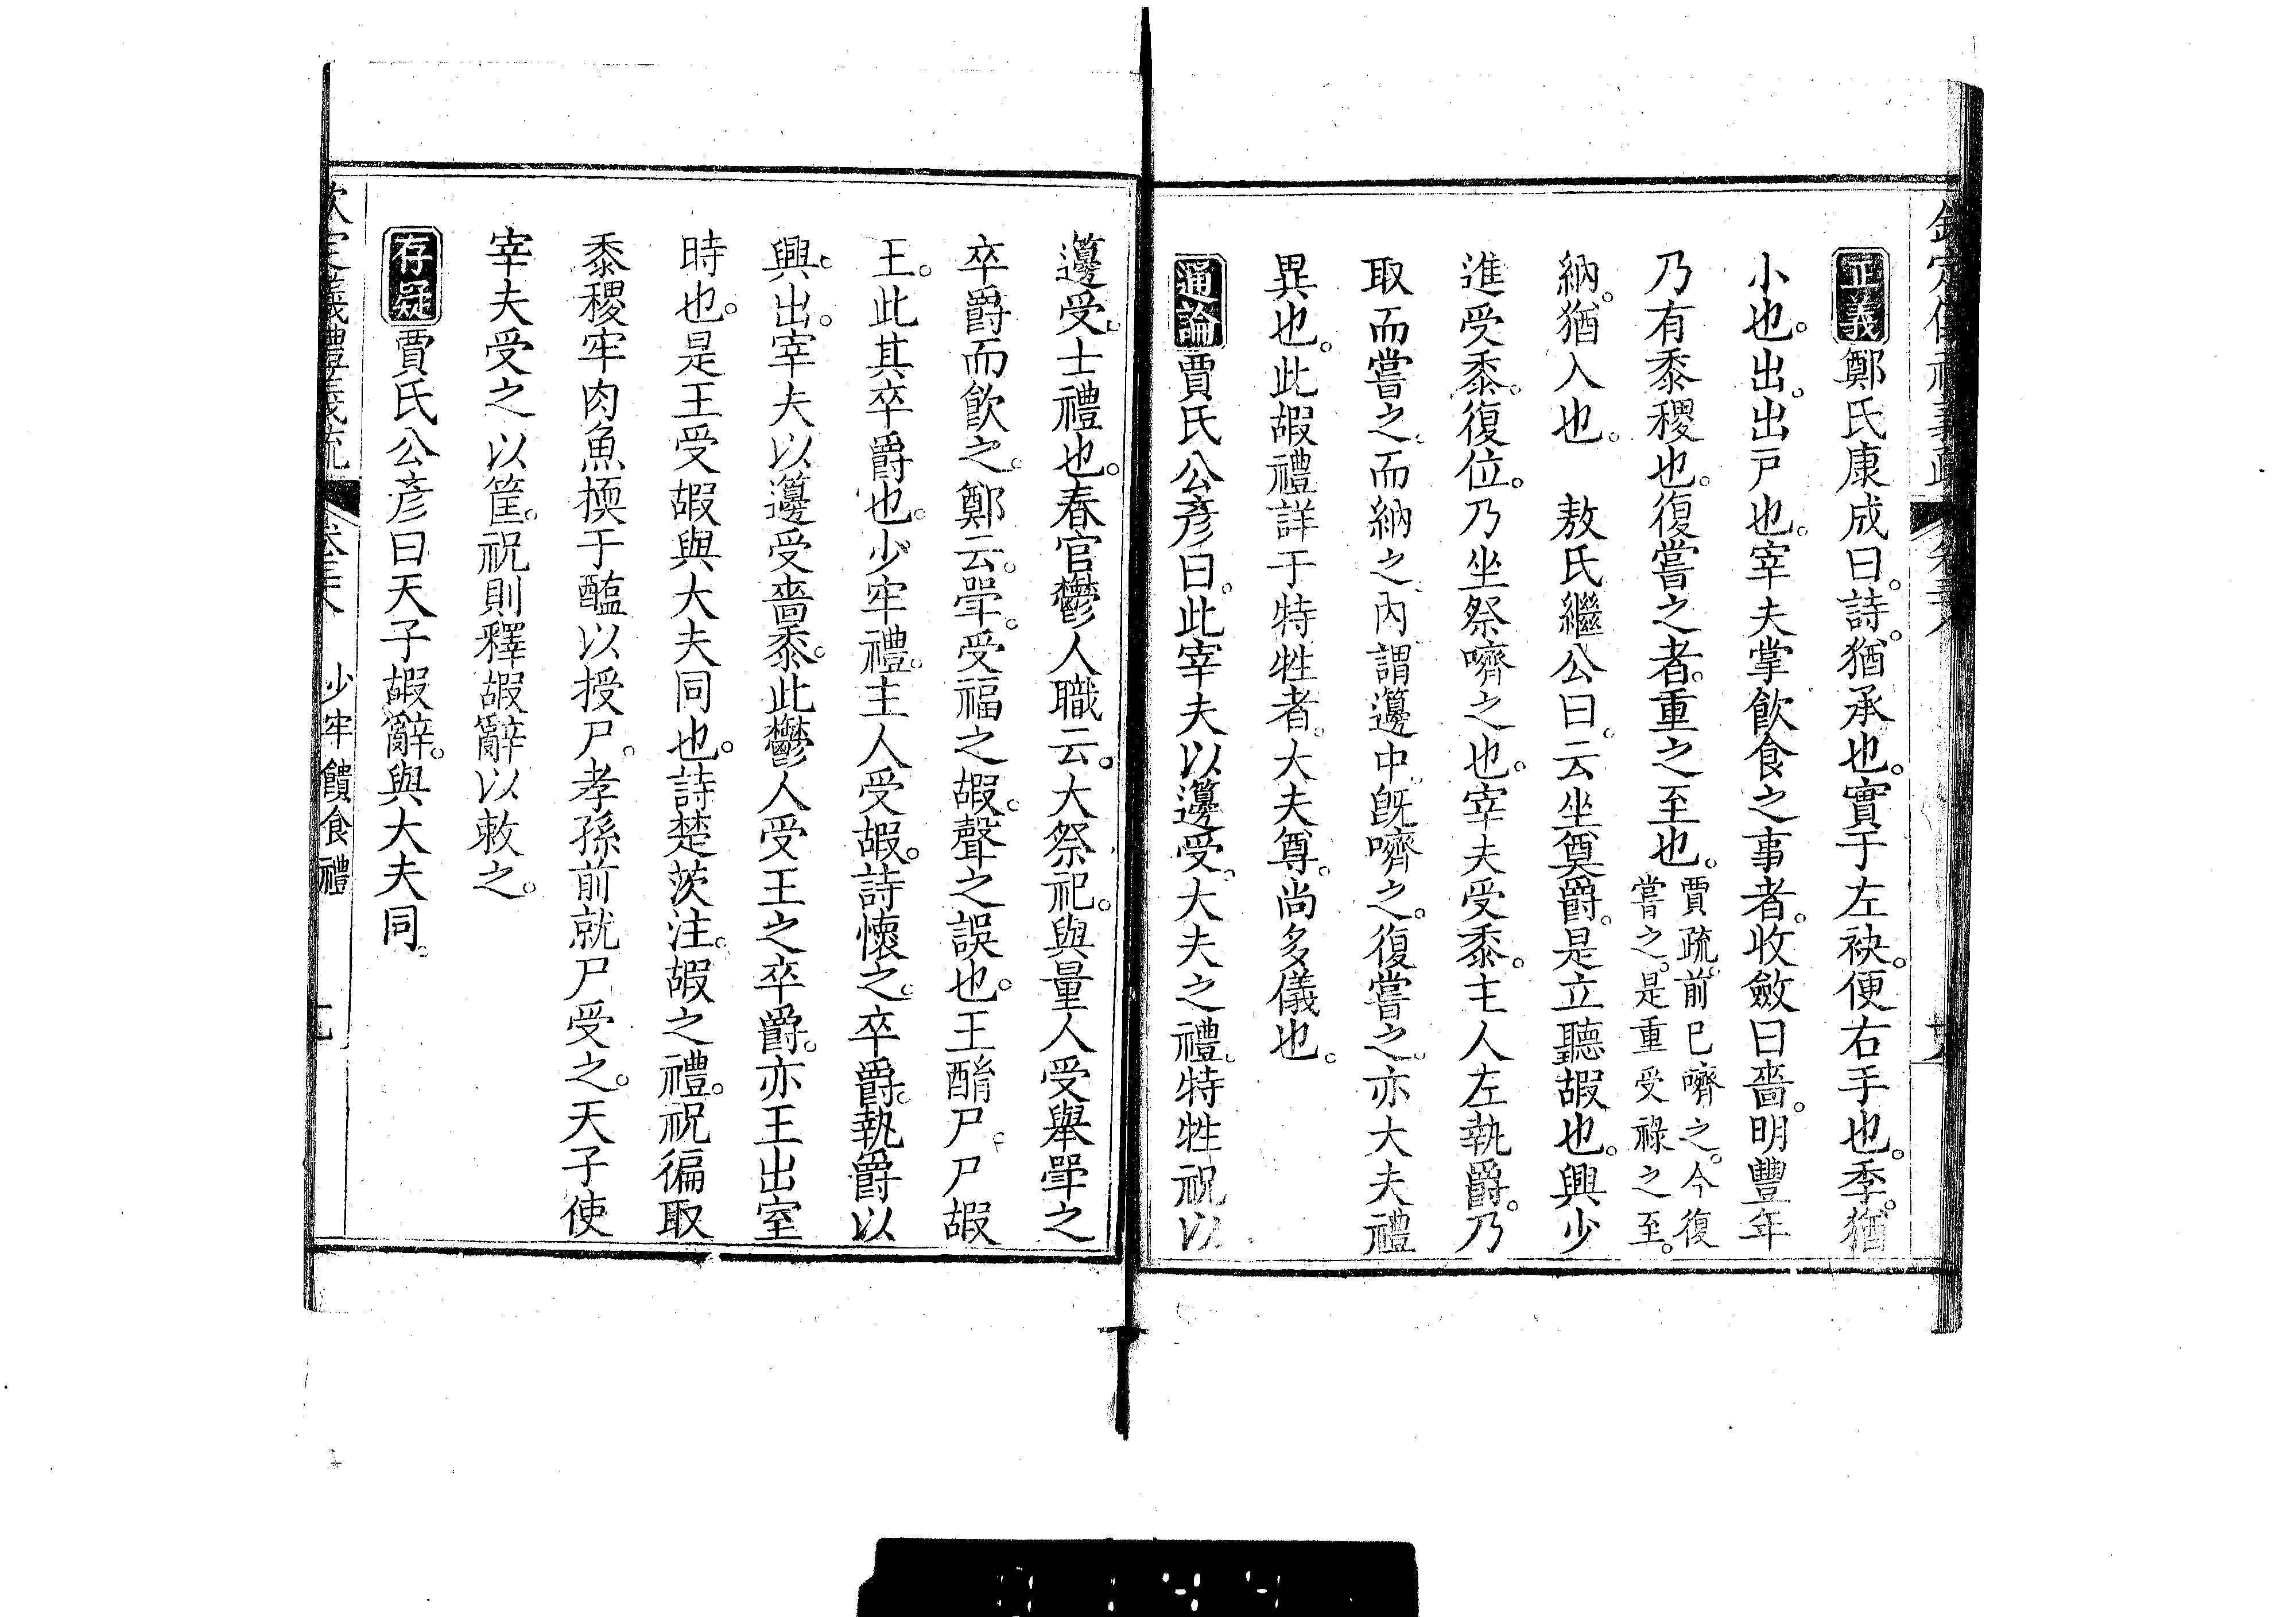 正義鄭氏康成曰。詩。猶承也。實于左袂。便右手也。季。猶
小也。出。出戸也。宰夫掌飲食之事者。收斂曰嗇。明豐年
乃有黍稷也。復嘗之者。重之至也。賈疏。前已嚌之。今復
嘗之。是重受祿之至。
納。猶入也。 敖氏繼公曰。云坐奠爵。是立聽嘏也。興少
進受黍。復位。乃坐祭嚌之也。宰夫受黍。主人左執爵。乃
取而嘗之。而納之內。謂籩中。旣嚌之。復嘗之。亦大夫禮
異也。此嘏禮詳于特牲者。大夫尊。尚多儀也。
通論賈氏公彥曰。此宰夫以籩受。大夫之禮。特牲祝以
籩受。士禮也。春官鬱人職云。大祭祀。與量人受舉斝之
卒爵而飮之。鄭云。斝。受福之嘏。聲之誤也。王酳尸。尸嘏
王。此其卒爵也。少牢禮。主人受嘏。詩懷之。卒爵。執爵以
興。出。宰夫以籩受嗇黍。此鬱人受王之卒爵。亦王出室
時也。是王受嘏與大夫同也。詩楚茨注。嘏之禮。祝徧取
黍稷牢肉魚擩于醢以授尸。孝孫前就尸受之。天子使
宰夫受之以筐。祝則釋嘏辭以敕之。
存疑賈氏公彥曰天子嘏辭。與大夫同。
少牢饋食禮